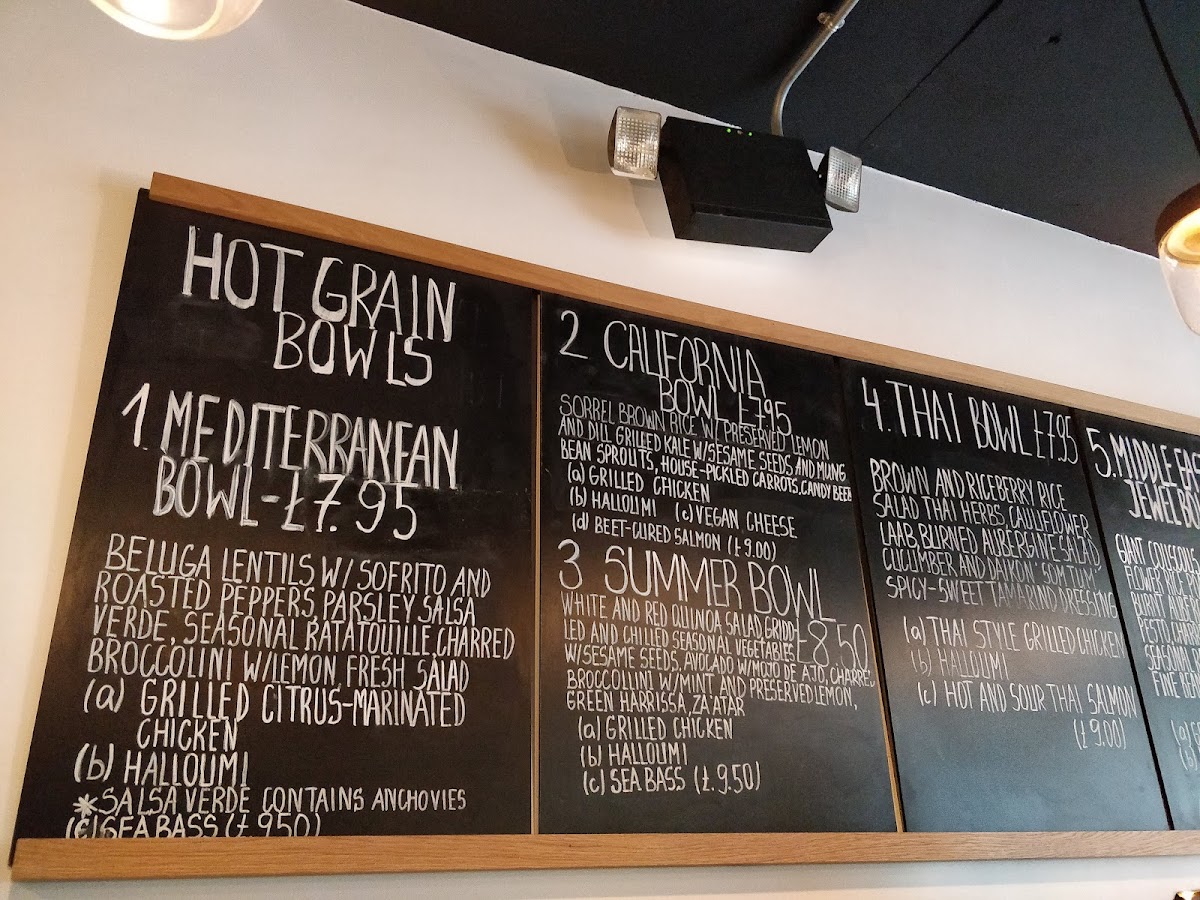 HOT GRAIN
BOWLS
1. MEDITERRANEAN
BOWL - £7.95
BELUGA LENTILS W/ SOFRITO AND
ROASTED PEPPERS, PARSLEY SALSA
VERDE, SEASONAL RATATOUILLE, CHARRED
BROCCOLINI W/LEMON, FRESH SALAD
(a) GRILLED CITRUS-MARINATED
CHICKEN
(b) HALLOUMI
*SALSA VERDE CONTAINS ANCHOVIES
(c) SEA BASS (£9.50)
2 CALIFORNIA
BOWL £7.95
SORREL BROWN RICE W/ PRESERVED LEMON
AND DILL GRILLED KALE W/SESAME SEEDS AND MUNG
BEAN SPROUTS, HOUSE-PICKLED CARROTS, CANDY BEER
(a) GRILLED CHICKEN
(b) HALLOUMI (c) VEGAN CHEESE
(d) BEET-CURED SALMON (£9.00)
3 SUMMER BOWL
£8.50
WHITE AND RED QUINOA SALAD, GRIDD-
LED AND CHILLED SEASONAL VEGETABLES
W/SESAME SEEDS, AVOCADO W/MOJO DE AJO, CHARRED
BROCCOLLINI W/MINT AND PRESERVED LEMON,
GREEN HARRISSA, ZA'ATAR
(a) GRILLED CHICKEN
(b) HALLOUMI
(c) SEA BASS (£.9.50)
4. THAI BOWL £7.95
BROWN AND RICEBERRY RICE
SALAD THAI HERBS, CAULIFLOWER
LAAB, BURNED AUBERGINE SALAD
CUCUMBER AND DAIKON 'SOM TUM'
SPICY-SWEET TAMARIND DRESSING
(a) THAI STYLE GRILLED CHICKEN
(b) HALLOUMI
(c) HOT AND SOUR THAI SALMON
(£9.00)
5. MIDDLE EAS
JEWEL B
GIANT COUSCOUS
FLOWER RICE
BURNT
PESTO CHAR
SEASONAL
FINE
(a)
(b)